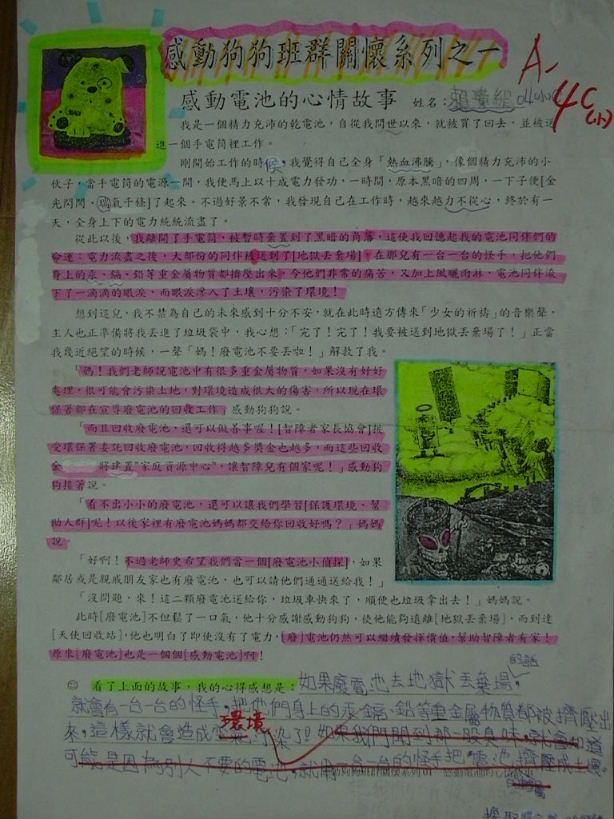 感動狗狗班群關懷系列之一
A-
感動電池的心情故事 姓名：
4C
我是一個精力充沛的乾電池，自從我問世以來，就被買了回去，並被送
進一個手電筒裡工作。
剛開始工作的時候，我覺得自己全身「熱血沸騰」，像個精力充沛的小
伙子，當手電筒的電源一開，我便馬上以十成電力發功，一時間，原本黑暗的四周，一下子便[金
光閃閃，瑞氣千條]了起來。不過好景不常，我發現自己在工作時，越來越力不從心，終於有一
天，全身上下的電力統統流盡了。
從此以後，我離開了手電筒，被暫時棄置到了黑暗的角落，這使我回憶起我的電池同伴們的
命運：電力流盡之後，大部份的同伴被送到了[地獄丟棄場]，在那兒有一台一台的怪手，把他們
身上的汞、鎘、鉛等重金屬物質都擠壓出來，令他們非常的痛苦，又加上風曬雨淋，電池同伴流
下了一滴滴的眼淚，而眼淚滲入了土壤，污染了環境！
想到這兒，我不禁為自己的未來感到十分不安，就在此時遠方傳來「少女的祈禱」的音樂聲，
主人也正準備將我丟進了垃圾袋中，我心想：「完了！完了！我要被送到地獄丟棄場了！」正當
我幾近絕望的時候，一聲「媽！廢電池不要丟啦！」解救了我。
「媽！我們老師說電池中有很多重金屬物質，如果沒有好好
處理，很可能會污染土地，對環境造成很大的傷害，所以現在環
保署都在宣導廢電池的回收工作」感動狗狗說。
「而且回收廢電池，還可以做善事喔！[智障者家長協會]接
受環保署委託回收廢電池，回收得越多獎金也越多，而這些回收
金 將建置"家庭資源中心"，讓智障兒有個家呢！」感動狗
狗接著說。
「看不出小小的廢電池，還可以讓我們學習[保護環境、幫
助人群]呢！以後家裡有廢電池媽媽都交給你回收好嗎？」媽媽
說。
「好啊！不過老師更希望我們當一個[廢電池小偵探]，如果
鄰居或是親戚朋友家也有廢電池，也可以請他們通通送給我！」
「沒問題，來！這二顆廢電池送給你，垃圾車快來了，順便也垃圾拿出去！」媽媽說。
此時[廢電池]不但鬆了一口氣，他十分感謝感動狗狗，使他能夠遠離[地獄丟棄場]，而到達
[天使回收站]，他也明白了即使沒有了電力，[廢]電池仍然可以繼續發揮價值，幫助智障者有家！
原來[廢電池]也是一個個[感動電池]啊！
的話
☺ 看了上面的故事，我的心得感想是：如果廢電池去地獄丟棄場，
就會有一台一台的怪手，把他們身上的汞、鎘、鉛等重金屬物質都被擠壓出
來，這樣就會造成環境污染了！如果我們聞到那一股臭味，就會知道
可能是因為別人不要的電池，就用一台一台的怪手把電池擠壓成土壤